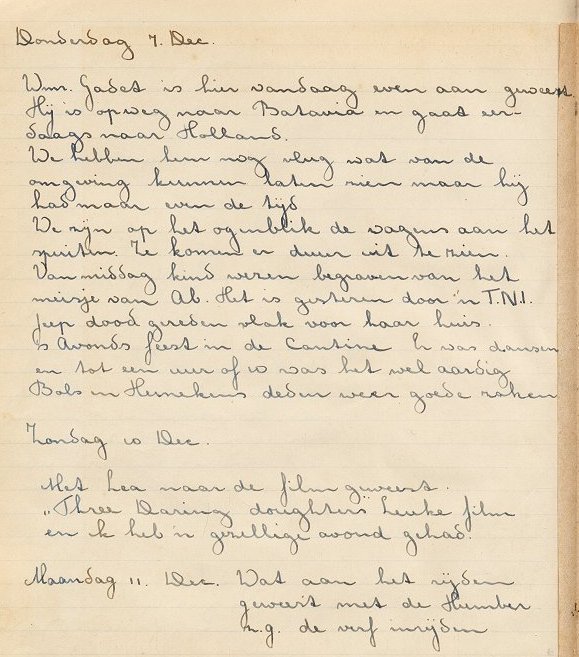 Donderdag 7. Dec.
Wmr. Gadet is hier vandaag even aan geweest.
Hij is opweg naar Batavia en gaat eer-
daags naar Holland.
We hebben hem nog vlug wat van de
omgeving kunnen laten zien maar hij
had maar even de tijd
We zijn op het ogenblik de wagens aan het
spuiten. Ze komen er duur uit te zien.
Van middag kind wezen begraven van het
meisje van Ab. Het is gisteren door 'n T.N.I.
jeep dood gereden vlak voor haar huis.
's Avonds feest in de Cantine Er was dansen
en tot een uur of 10 was het wel aardig
Bols en Heinekens deden weer goede zaken
Zondag 10 Dec.
Met Lea naar de film geweest.
"Three Daring doughters" Leuke film
en ik heb 'n gezellige avond gehad.
Maandag 11. Dec. Wat aan het rijden
geweest met de Humber
n.g. de verf inrijden